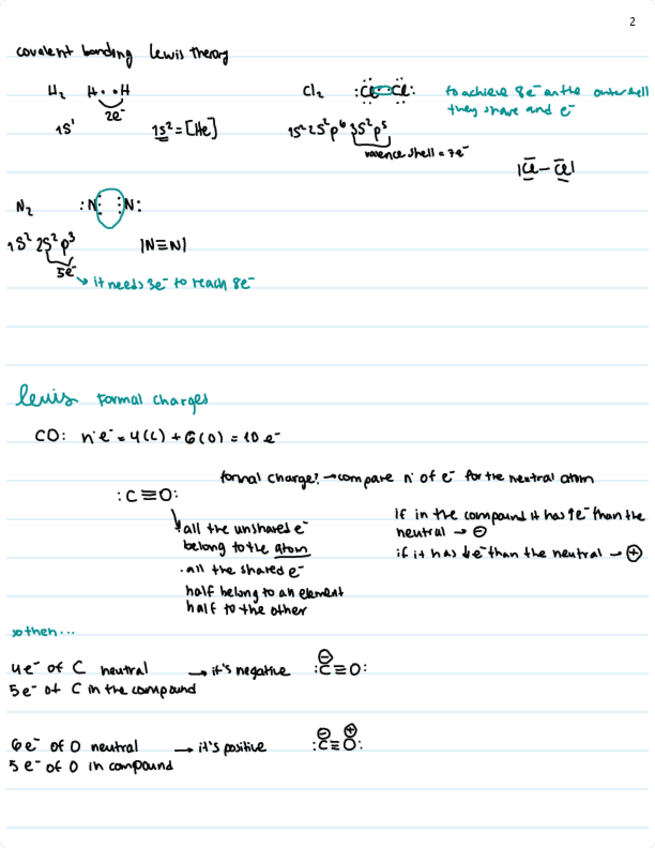 2
covalent bonding Lewis Theory
H₂ H· ·H
2e⁻
1s¹ 1s² = [He]
Cl₂ :Cl Cl:
to achieve 8e⁻ on the outer shell
they share and e⁻
1s² 2s² p⁶ 3s² p⁵
valence shell = 7e⁻
|Cl – Cl|
N₂ :N: :N:
1s² 2s² p³ |N≡N|
5e⁻
↘ it needs 3e⁻ to reach 8e⁻
lewis formal charges
CO: n°e⁻ = 4(C) + 6(O) = 10 e⁻
formal charge? → compare n° of e⁻ for the neutral atom
:C≡O:
· all the unshared e⁻
belong to the atom
· all the shared e⁻
half belong to an element
half to the other
If in the compound it has ↑e⁻ than the
neutral → ⊖
if it has ↓e⁻ than the neutral → ⊕
so then...
4e⁻ of C neutral → it's negative :C≡O: ⊖
5e⁻ of C in the compound
6e⁻ of O neutral → it's positive :C≡O: ⊖ ⊕
5 e⁻ of O in compound